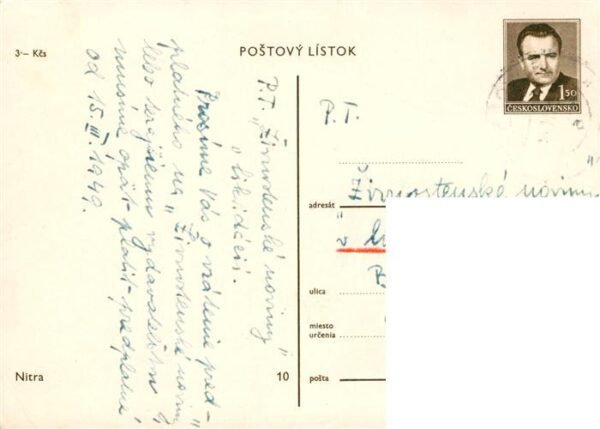 3·— Kčs
POŠTOVÝ LÍSTOK
1 50
ČESKOSLOVENSKO
P. T. „Živnostenské noviny"
„likvidácii.
Prosíme Vás o vrátenie pred-
platného na „Živnostenské noviny"
lebo
musíme opäť platiť predplatné
od 15. III. 1949.
P. T.
„Živnostenské noviny
adresát
„v
P
ulica
miesto
určenia
pošta
Nitra
10